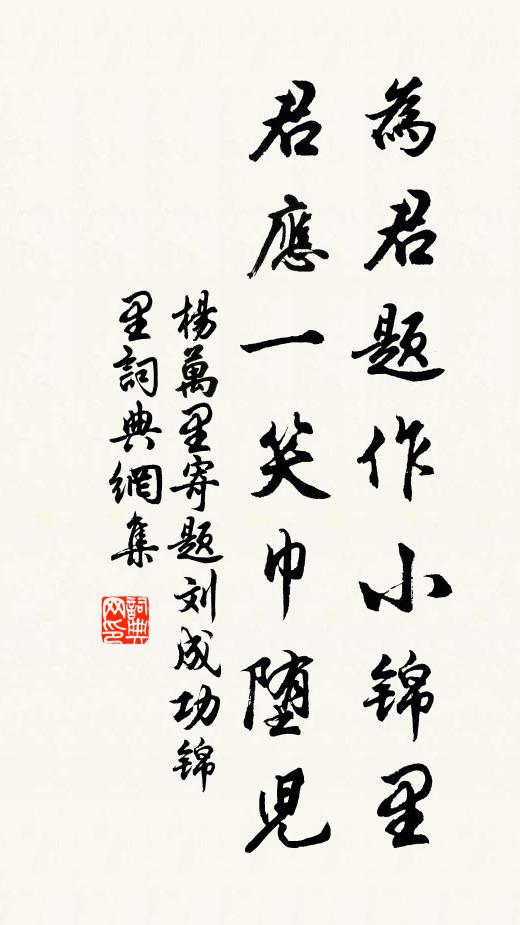 為君題作小锦里
君應一笑巾堕兒
楊萬里寄题刘成功锦
里詞典網集
詞典
网印